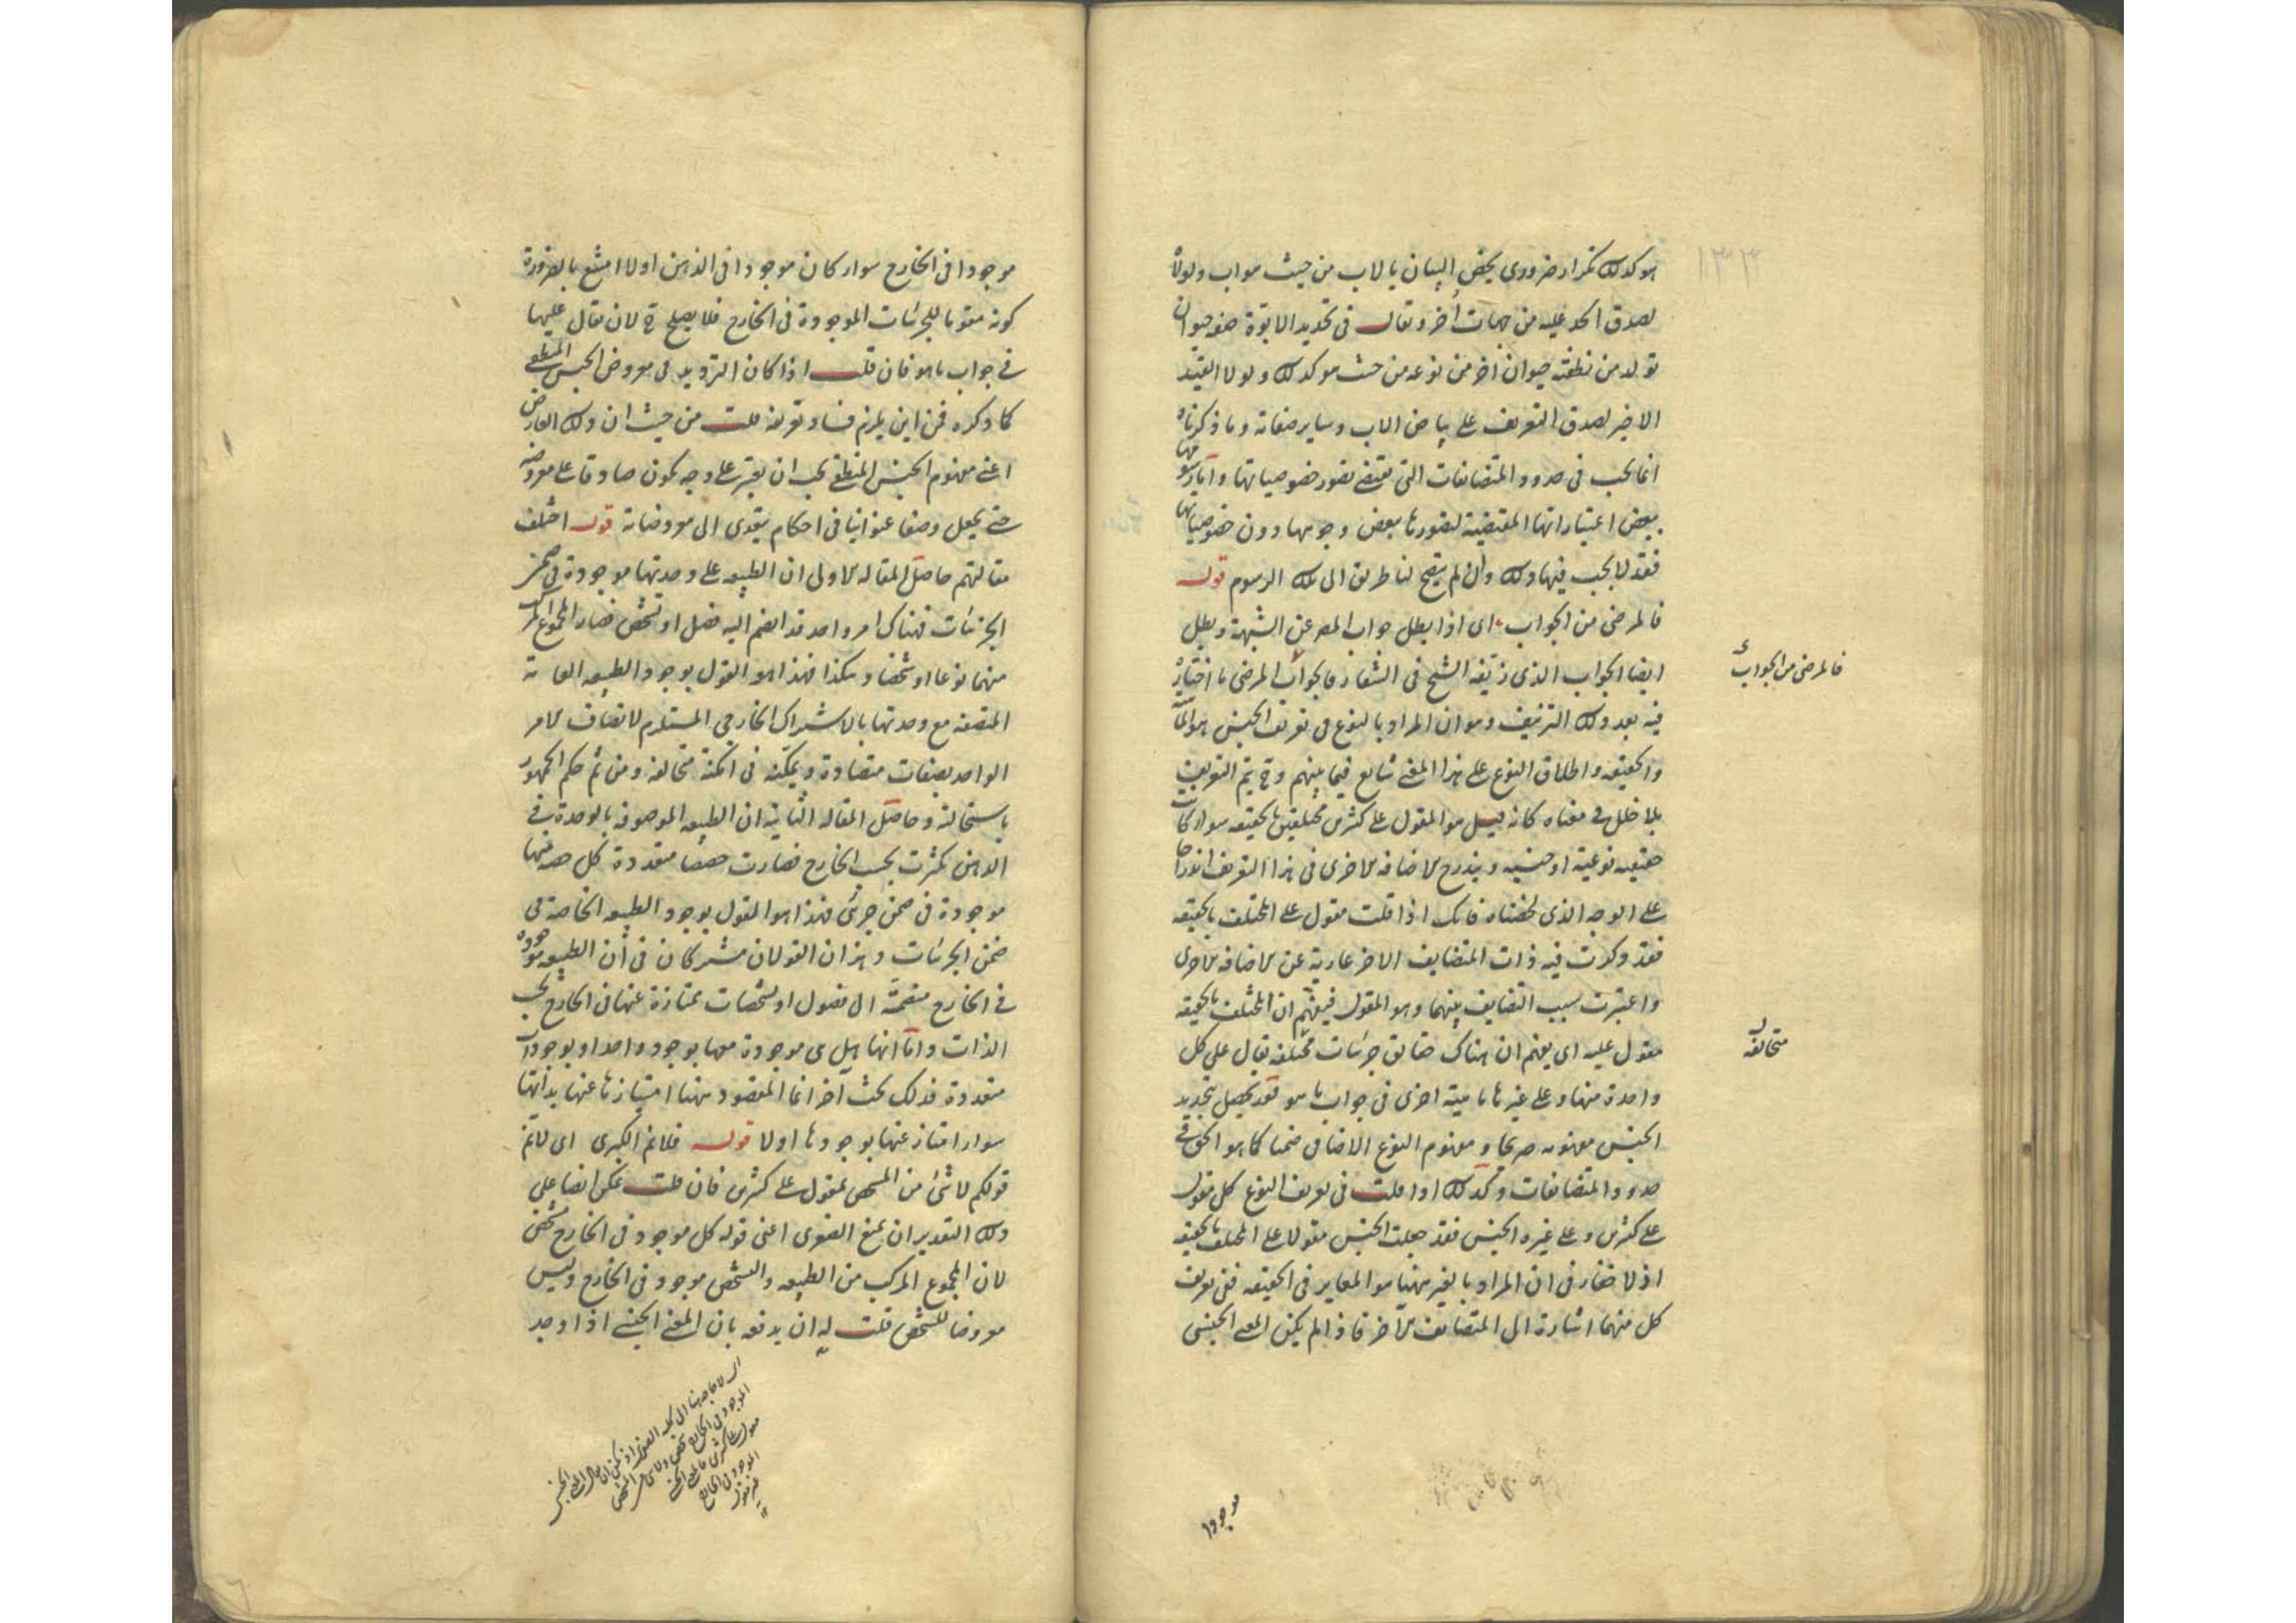 ١٣٣
هو كذلك تكرار ضروري يخص البيان بالاب من حيث هو اب ولولاه
لصدق الحد عليه من جهات أخر وتقال في تحديد الابوة هو حيوان
تولد من نطفته حيوان اخر من نوعه من حيث هو كذلك ولولا القيد
الاخير لصدق التعريف على بياض الاب وساير صفاته وما ذكرناه
انما يجب في حدود المتضايفات التي تقتضي تصور خصوصياتها واما رسومها
ببعض اعتباراتها المقتضية لتصورها ببعض وجوهها دون خصوصياتها
فقد لا يجب فيها ذلك وان لم يتضح لنا طريق الى تلك الرسوم قوله
فالمرضى من الجواب اى اذا بطل جواب المص عن الشبهة وبطل
ايضا الجواب الذى زيفه الشيخ في الشفاء فالجواب المرضى ما اختاره
فيه بعد ذلك التزييف وهو ان المراد بالنوع في تعريف الجنس هو الماهية
والحقيقة واطلاق النوع على هذا المعنى شايع فيما بينهم وح يتم التعريف
بلا خلل في معناه كانه قيل هو المقول على كثيرين مختلفين بالحقيقة سواء كانت
حقيقه نوعية او جنسيه ويندرج الاضافه الاخرى في هذا التعريف اندراجا
على الوجه الذى لخصناه فانك اذا قلت مقول على المختلف بالحقيقه
فقد ذكرت فيه ذات المتضايف الاخر عارية عن الاضافه الاخرى
واعتبرت سبب التضايف بينهما وهو المقول فيفهم ان المختلف بالحقيقه
مقول عليه اى يعلم ان هناك حقايق جزئيات مختلفه يقال على كل
واحدة منها وعلى غيرها ماهية اخرى في جواب ما هو فقد يحصل بتحديد
الجنس مفهومه صريحا ومفهوم النوع الاضافى ضمنا كما هو الحق في
حدود المتضايفات وكذلك اذا قلت في تعريف النوع كل مقول
على كثيرين وعلى غيره الجنس فقد جعلت الجنس مقولا على المختلف بالحقيقه
اذ لا خفاء في ان المراد بالغير ههنا هو المغاير في الحقيقه ففى تعريف
كل منهما اشارة الى المتضايف الآخر فاذا لم يكن المعنى الجنسى
فالمرضى من الجواب
متخالفه
موجودا
موجودا في الخارج سواء كان موجودا في الذهن اولا امتنع بالضرورة
كونه مقوما للجزئيات الموجودة في الخارج فلا يصلح ح لان يقال عليها
في جواب ما هو فان قلت اذا كان الترديد في معروض الجنس المنطقى
كما ذكره فمن اين يلزم فساد تعريفه قلت من حيث ان ذلك العارض
اعنى مفهوم الجنس المنطقى يجب ان يعتبر على وجه يكون صادقا على معروضه
حتى يجعل وصفا عنوانيا في احكام يتعدى الى معروضاته قوله اختلف
مقالتهم حاصل المقاله الاولى ان الطبيعه على وحدتها موجودة في ضمن
الجزئيات فهناك امر واحد قد انضم اليه فصل او تشخص فصار المجموع المركب
منهما نوعا او شخصا وهكذا فهذا هو القول بوجود الطبيعه العامة
المتصفه مع وحدتها بالاشتراك الخارجى المستلزم لاتصاف الامر
الواحد بصفات متضادة وتمكنه في امكنة متخالفه ومن ثم حكم الجمهور
باستحالته وحاصل المقاله الثانيه ان الطبيعه الموصوفه بالوحدة في
الذهن تكثرت بحسب الخارج فصارت حصصا متعددة كل حصه منها
موجودة في ضمن جزئى فهذا هو القول بوجود الطبيعه الخاصة في
ضمن الجزئيات وهذان القولان مشتركان في ان الطبيعه موجوده
في الخارج منضمة الى فصول او تشخصات ممتازة عنها في الخارج بحسب
الذات واما انها هل هى موجودة معها بوجود واحد او بوجودات
متعددة فذلك بحث آخر انما المقصود ههنا امتيازها عنها بذاتها
سواء امتاز عنها بوجودها اولا قوله فلانم الكبرى اى لانم
قولكم لا شئ من المشخص بمقول على كثيرين فان قلت يمكن ايضا على
ذلك التقدير ان يمنع الصغرى اعنى قوله كل موجود في الخارج مشخص
لان المجموع المركب من الطبيعه والتشخص موجود في الخارج وليس
معروضا للتشخص قلت له ان يدفعه بان المعنى الجنسى اذا وجد